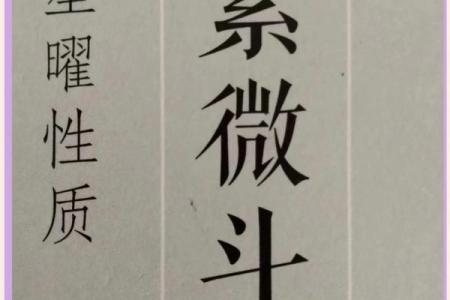 紫微斗
星曜性质